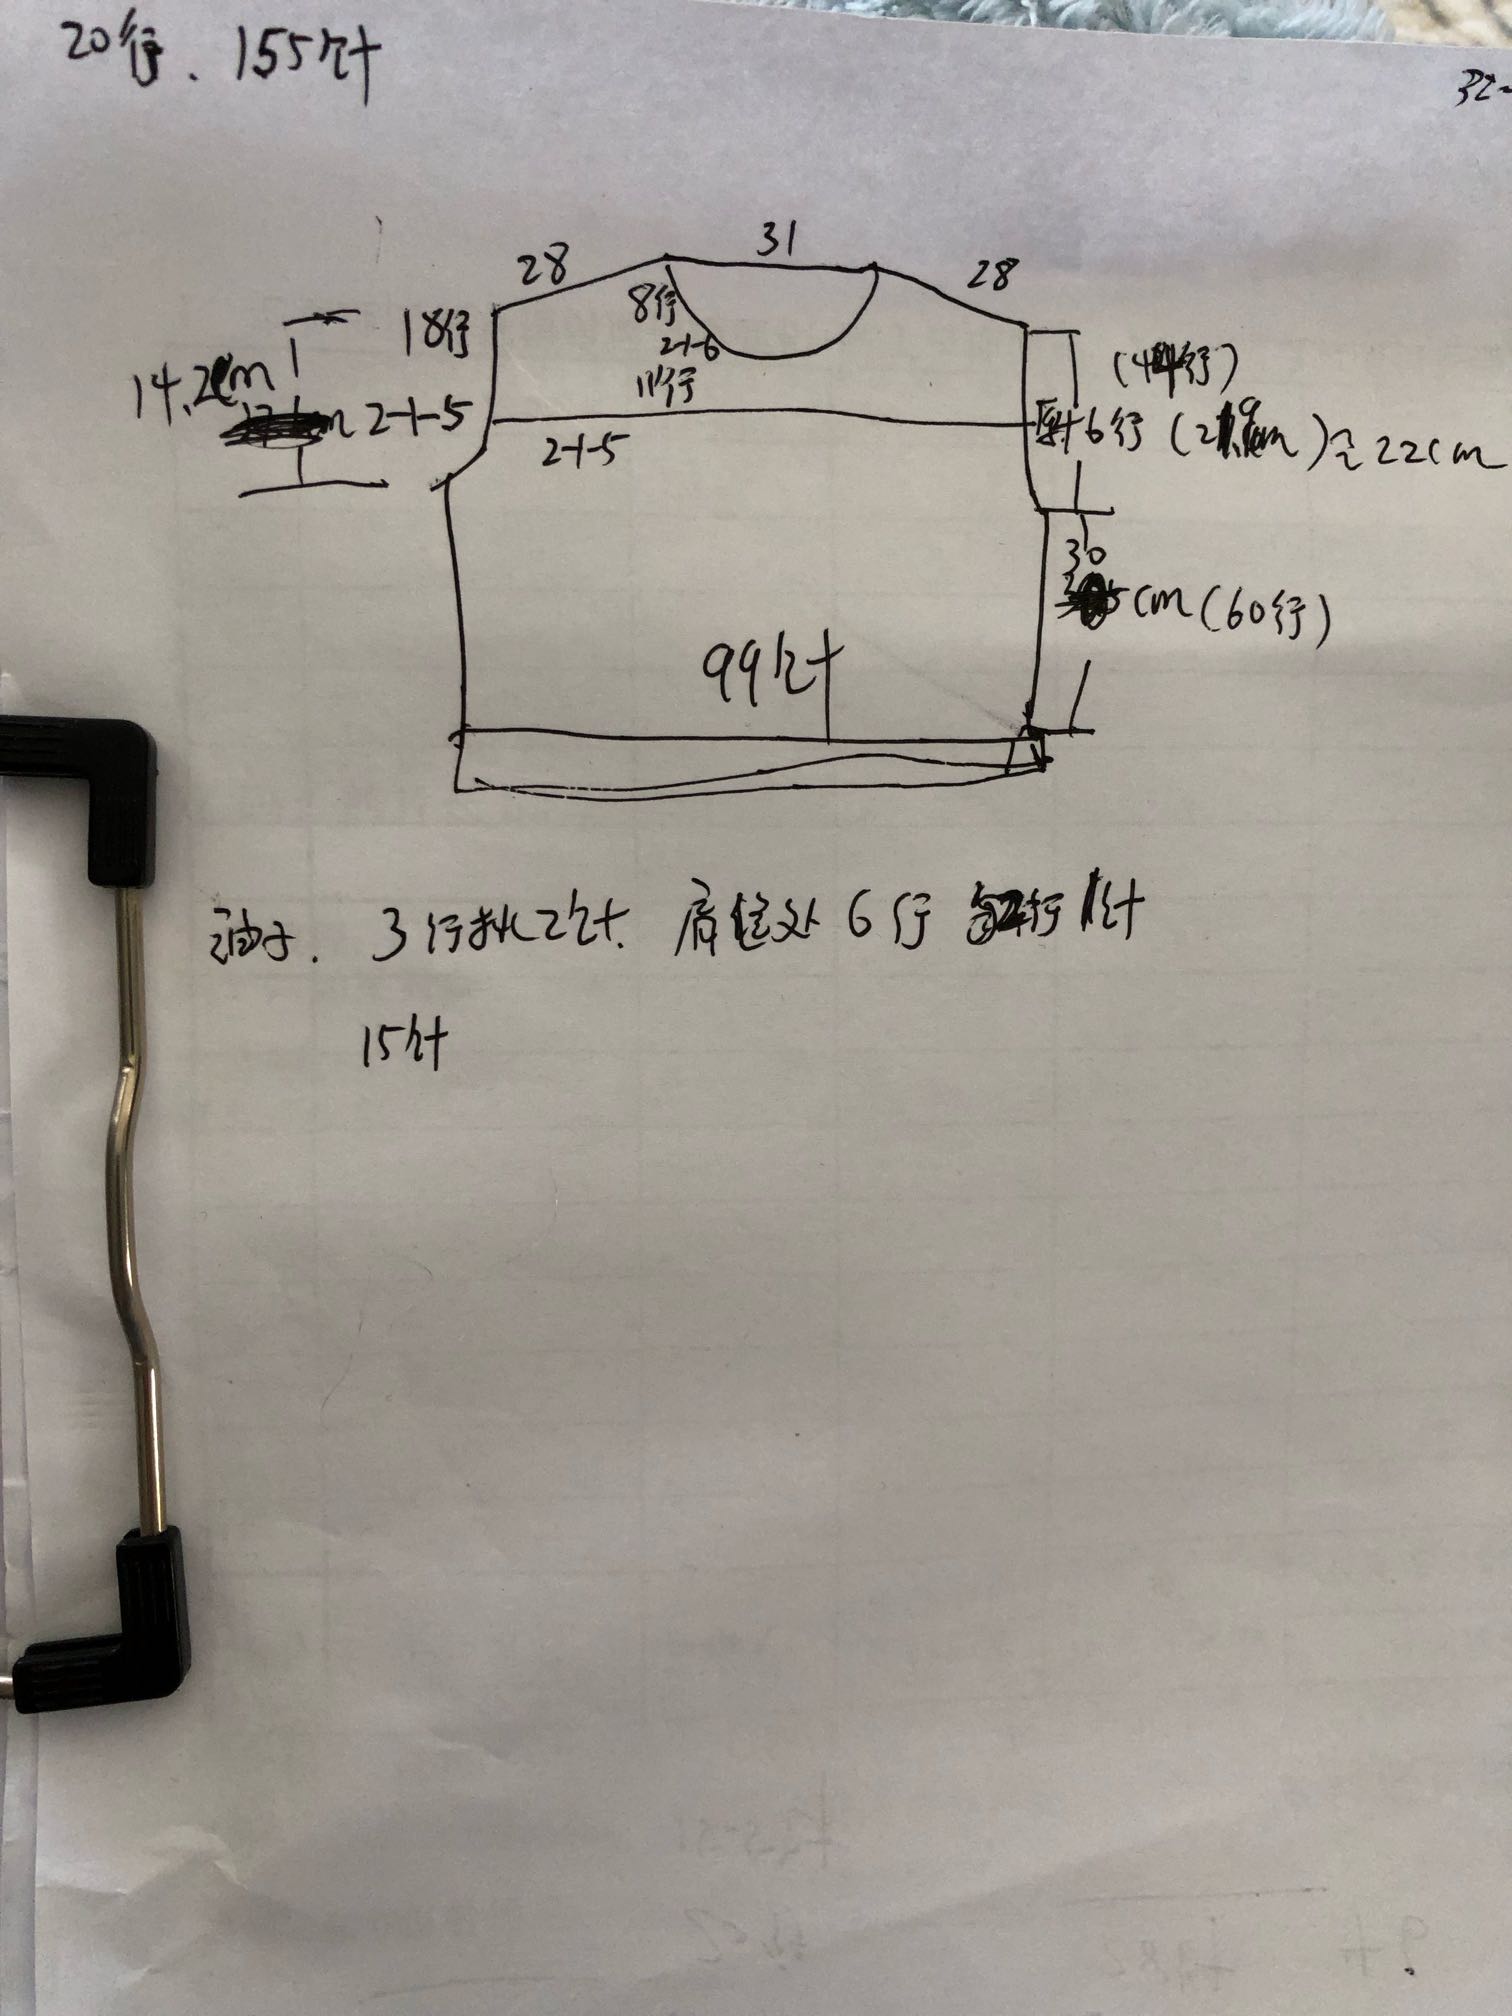 20行、155针
32
31
28
28
8行
18行
2-1-6
(44行)
14.2cm
11行
2-1-5
2-1-5
6行 (21.9cm) ≈ 22cm
30
cm (60行)
99针
袖子. 3行挑2针. 肩位处6行 每2行1针
15针